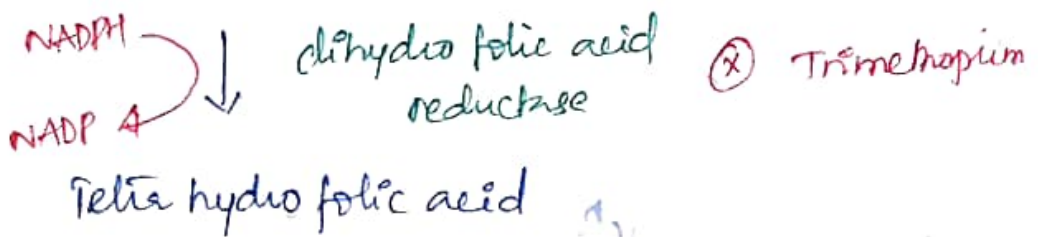 NADPH
dihydro folic acid
reductase
ⓧ Trimethopium
NADP
Tetra hydro folic acid